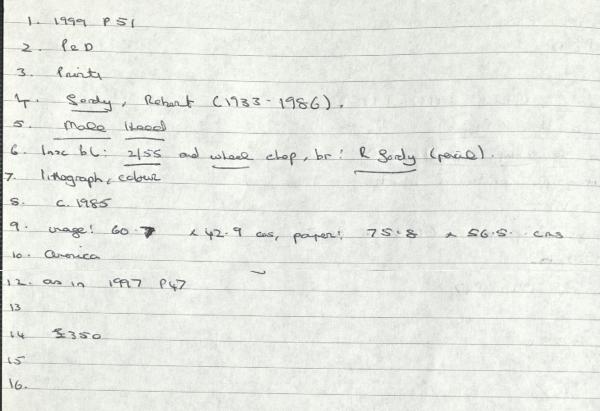 1. 1999 P51
2. P&D
3. Prints
4. Sardy, Robert (1933-1986).
5. Male Head
6. Insc bl: 2/55 and wheel chop, br: R Sardy (pencil).
7. lithograph, colour
8. c. 1985
9. image: 60.7 x 42.9 cms, paper: 75.8 x 56.5. cms
10. America
12. as in 1997 P47
13
14 £350
15
16.